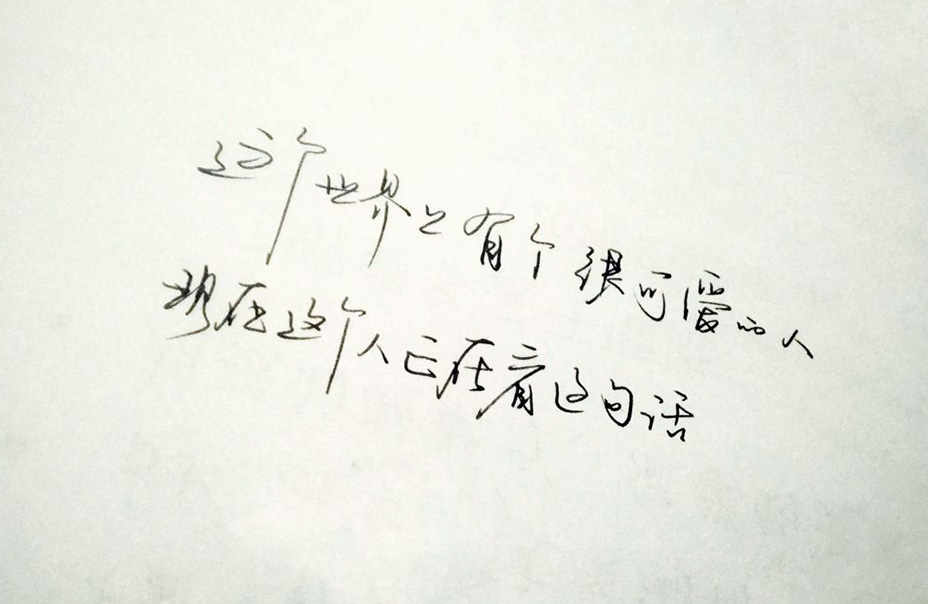 这个世界上有个很可爱的人
现在这个人正在看这句话